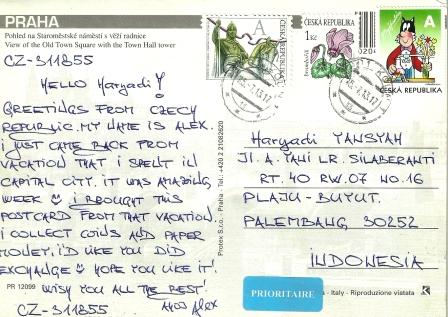 PRAHA
Pohled na Staroměstské náměstí s věží radnice
View of the Old Town Square with the Town Hall tower
CZ-311855
HELLO Haryadi!
GREETINGS FROM CZECH
REPUBLIC. MY NAME IS ALEX.
I JUST CAME BACK FROM
VACATION THAT I SPENT IN
CAPITAL CITY. IT WAS AMAZING
WEEK I BROUGHT THIS
POSTCARD FROM THAT VACATION
I COLLECT COINS AND PAPER
MONEY. I'D LIKE YOU DID
EXCHANGE HOPE YOU LIKE IT!
WISH YOU ALL THE BEST!
PR 12099
CZ-311855
AHOJ Alex
Protex S.r.o. - Praha - Tel.: +420 2 21082620
A
ČESKÁ REPUBLIKA
ČESKÁ REPUBLIKA
1 Kč
A
ČESKÁ REPUBLIKA
Haryadi YANSYAH
Jl. A. YANI LR. SILABERANTI
RT. 40 RW. 07 NO. 16
PLAJU - BUYUT.
PALEMBANG 30252
INDONESIA
PRIORITAIRE
- Italy - Riproduzione vietata